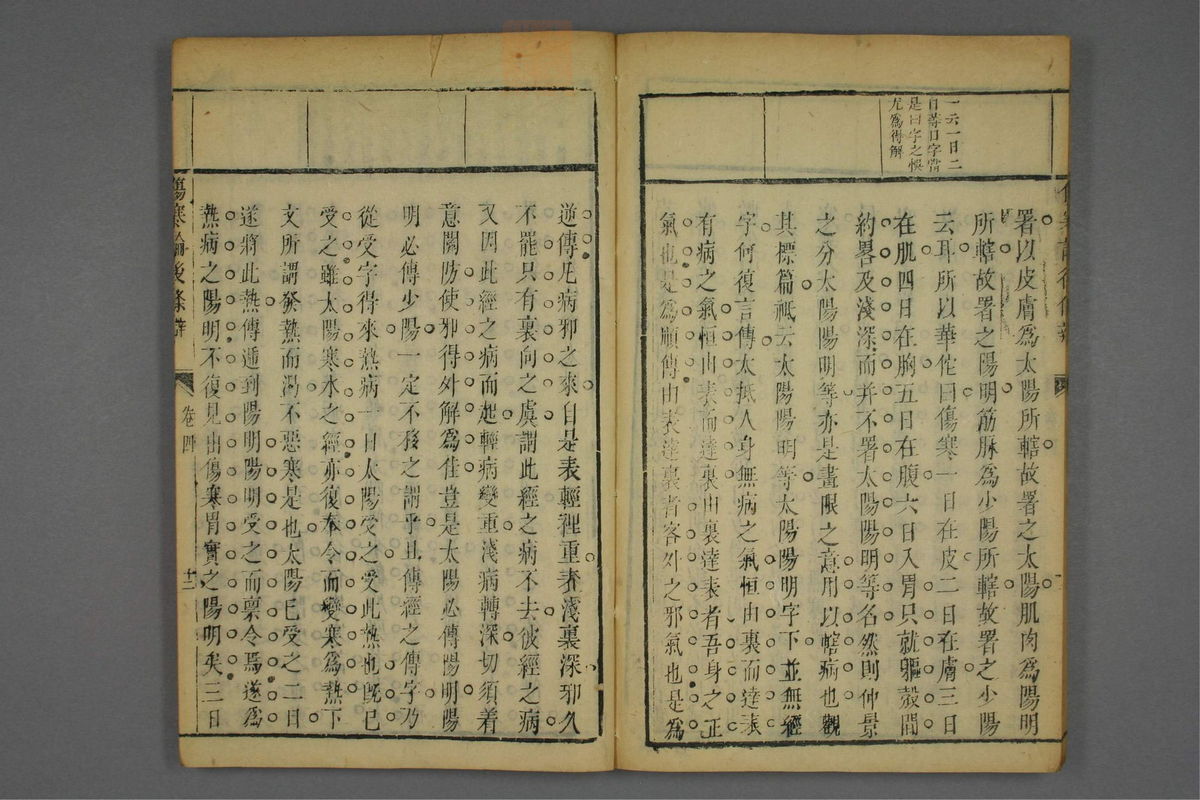 一云一日二
日等日字當
是曰字之悞
尤爲得解
署以皮膚爲太陽所轄故署之太陽肌肉爲陽明
所轄故署之陽明筋脉爲少陽所轄故署之少陽
云耳所以華佗曰傷寒一日在皮二日在膚三日
在肌四日在胸五日在腹六日入胃只就軀殼間
約畧及淺深而并不署太陽陽明等名然則仲景
之分太陽陽明等亦是畫限之意用以轄病也觀
其標篇祗云太陽陽明等太陽陽明字下並無經
字何復言傳太抵人身無病之氣恒由裏而達表
有病之氣恒由表而達裏由裏達表者吾身之正
氣也是爲順傳由表達裏者客外之邪氣也是爲
逆傳凡病邪之來自是表輕裡重表淺裏深邪久
不罷只有裏向之虞謂此經之病不去彼經之病
又因此經之病而起輕病變重淺病轉深切須着
意関防使邪得外解爲佳豈是太陽必傳陽明陽
明必傳少陽一定不移之謂乎且傳經之傳字乃
從受字得來熱病一日太陽受之受此熱也既已
受之雖太陽寒水之經亦復奉令而變寒爲熱下
文所謂發熱而渴不惡寒是也太陽已受之二日
遂將此熱傳遞到陽明陽明受之而禀令焉遂爲
熱病之陽明不復見由傷寒胃實之陽明矣三日
傷寒論後條辨
卷四
十二